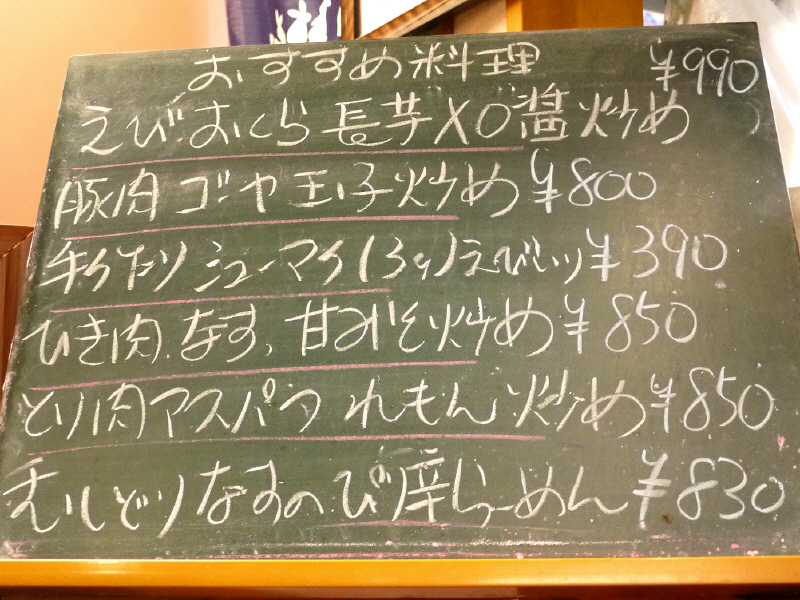 おすすめ料理 ¥990
えび おくら 長芋 XO醤炒め
豚肉 ゴーヤ 玉子炒め ¥800
手作り シューマイ(3ヶ)えび入り ¥390
ひき肉、なす、甘みそ炒め ¥850
とり肉アスパラ れもん 炒め ¥850
むしどりなすのぴり辛らーめん ¥830